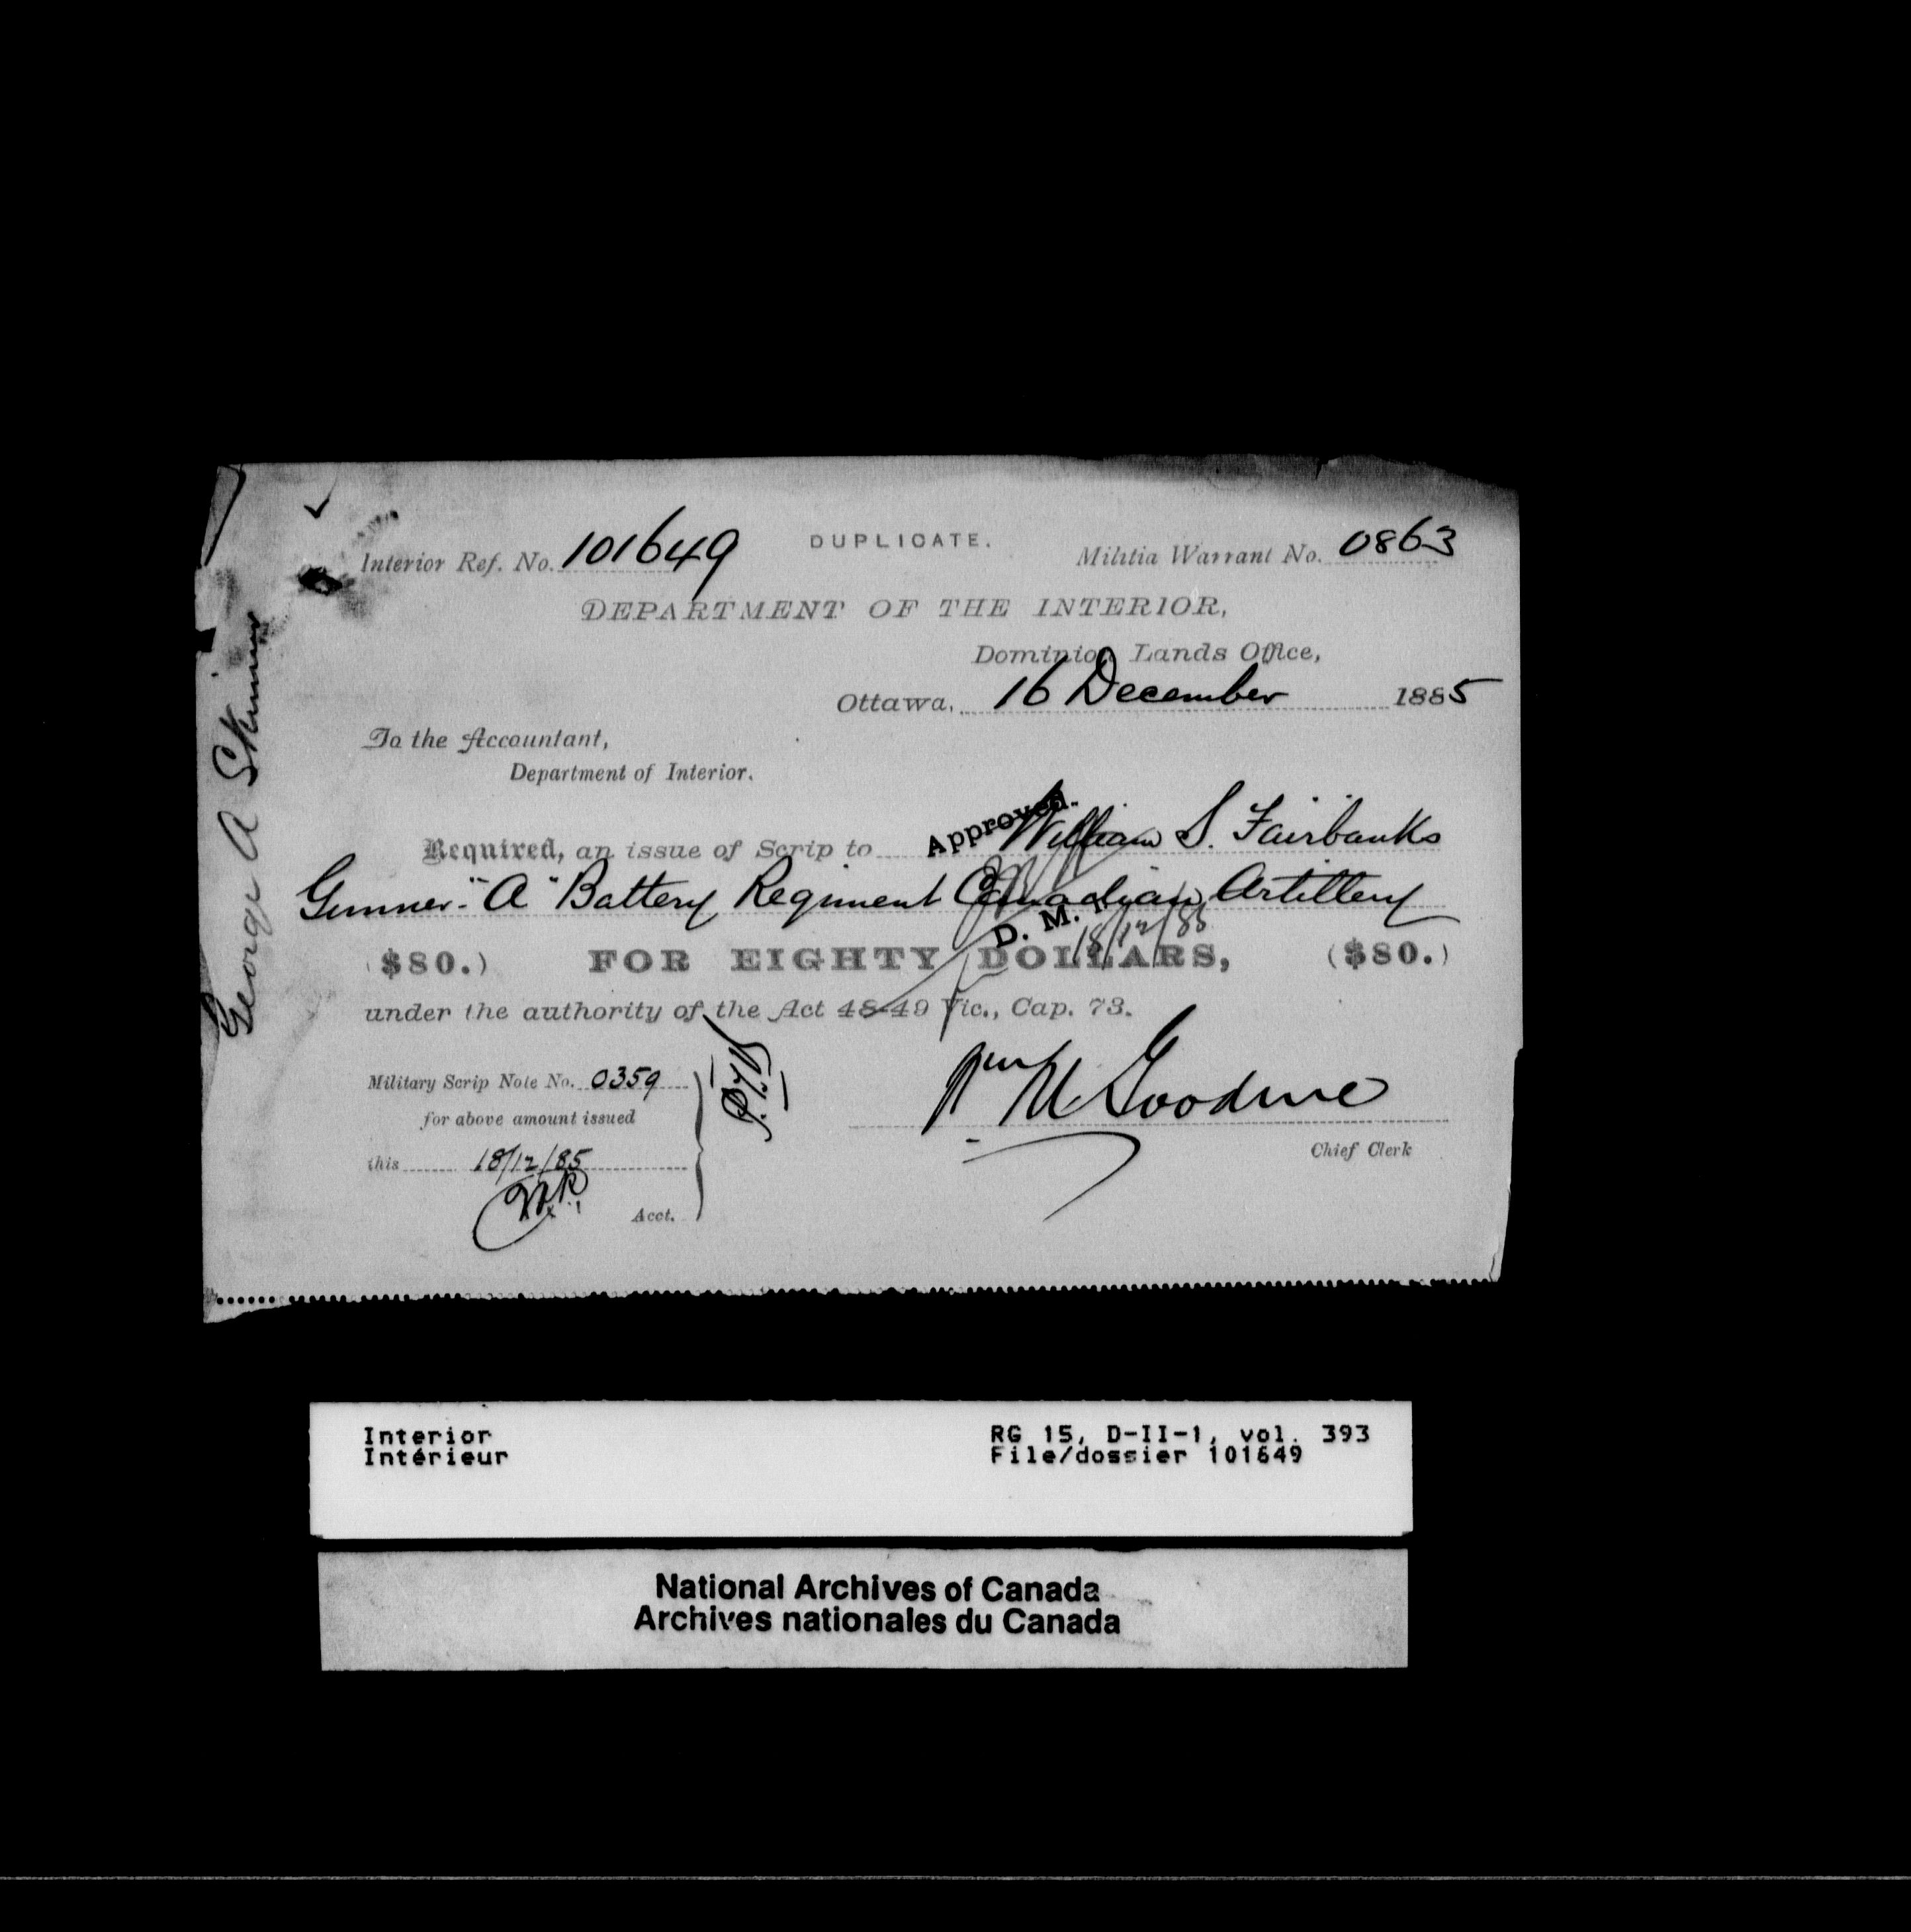 Interior Ref. No. 101649
DUPLICATE.
Militia Warrant No. 0863
DEPARTMENT OF THE INTERIOR,
Dominion Lands Office,
Ottawa, 16 December 1885
To the Accountant,
Department of Interior.
Approved.
Required, an issue of Scrip to William S. Fairbanks
Gunner "A" Battery Regiment Canadian Artillery
D. M.
18/12/85
($80.) FOR EIGHTY DOLLARS, ($80.)
under the authority of the Act 48-49 Vic., Cap. 73.
Military Scrip Note No. 0359
for above amount issued
this 18/12/85
Acct.
Chief Clerk
George A Skinner
Interior
Intérieur
RG 15, D-II-1, vol. 393
File/dossier 101649
National Archives of Canada
Archives nationales du Canada